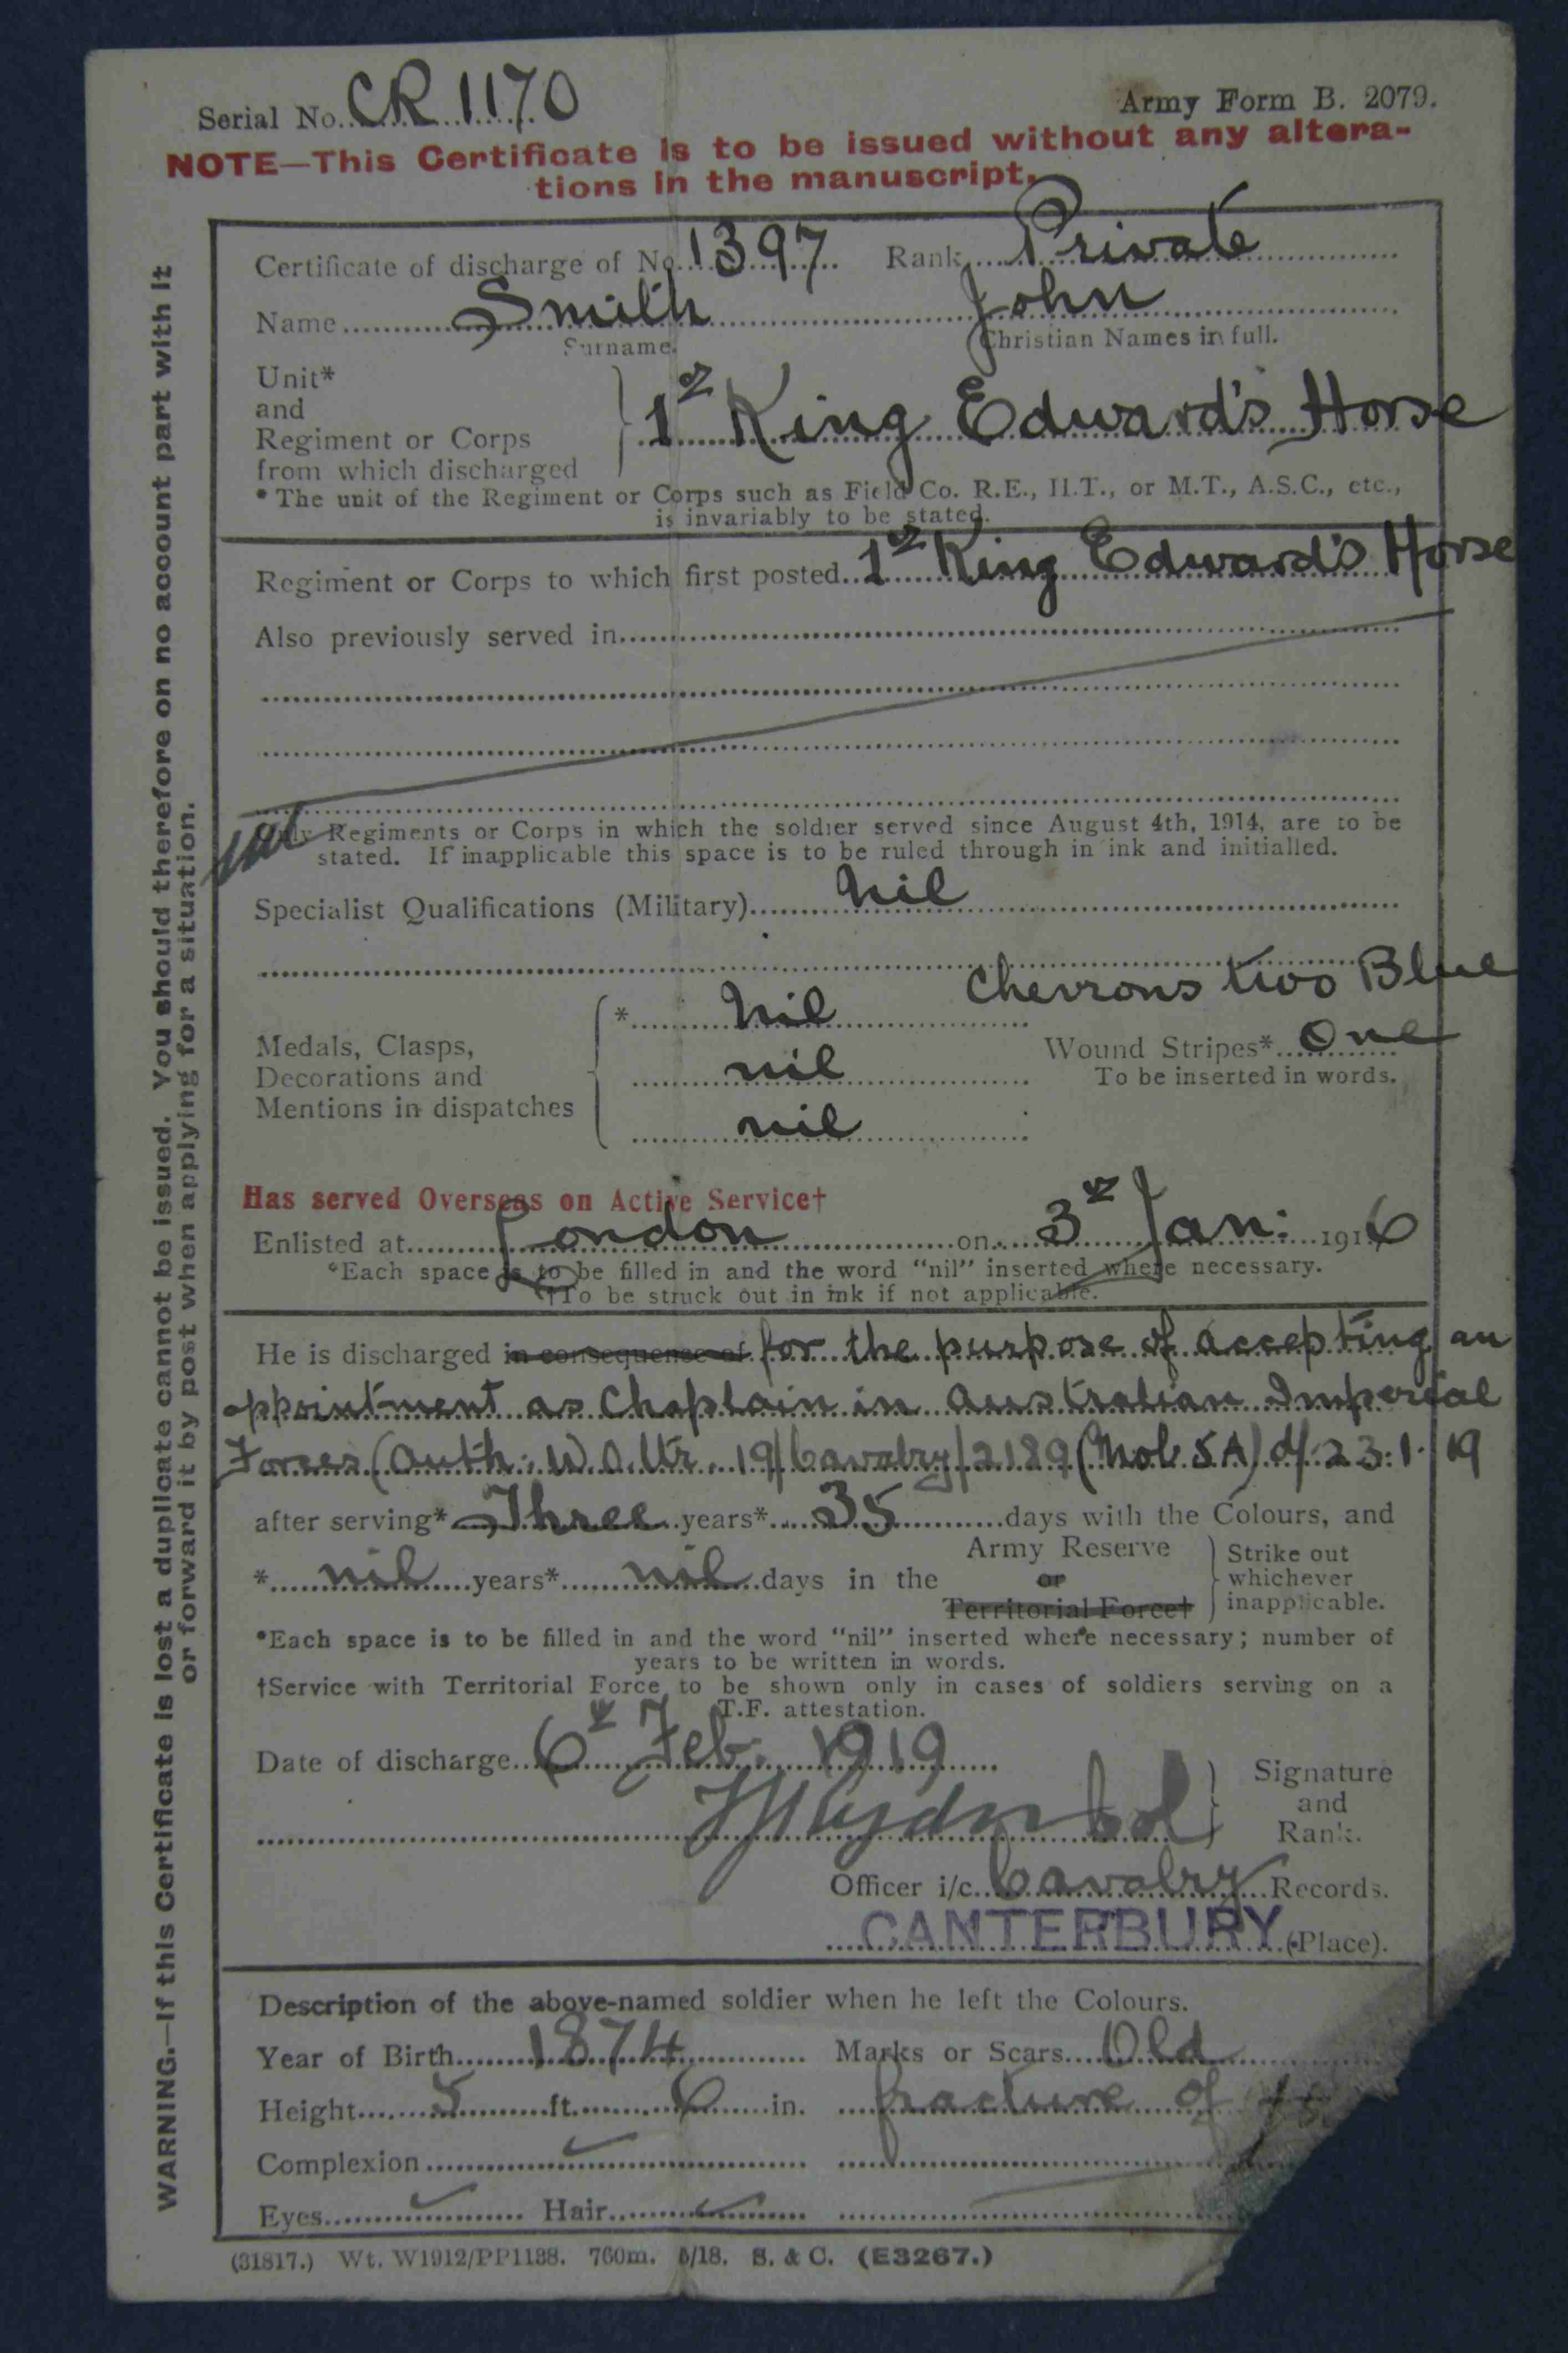 Serial No. CR 1170
Army Form B. 2079.
NOTE—This Certificate is to be issued without any altera-
tions in the manuscript.
Certificate of discharge of No. 1397 Rank Private
Name Smith John
Surname. Christian Names in full.
Unit*
and
Regiment or Corps
from which discharged
1st King Edward's Horse
*The unit of the Regiment or Corps such as Field Co. R.E., H.T., or M.T., A.S.C., etc.,
is invariably to be stated.
Regiment or Corps to which first posted 1st King Edward's Horse
Also previously served in
Only Regiments or Corps in which the soldier served since August 4th, 1914, are to be
stated. If inapplicable this space is to be ruled through in ink and initialled.
Specialist Qualifications (Military) nil
Chevrons two Blue
Medals, Clasps,
Decorations and
Mentions in dispatches
* nil
nil
nil
Wound Stripes* One
To be inserted in words.
Has served Overseas on Active Service†
Enlisted at London on 3rd Jan: 1916
*Each space is to be filled in and the word "nil" inserted where necessary.
†To be struck out in ink if not applicable.
He is discharged in consequence of for the purpose of accepting an
appointment as Chaplain in Australian Imperial
Forces (Auth: W.O. ltr. 19/Cavalry/2189 (Mob. 5A) d/ 23.1.19
after serving* Three years* 35 days with the Colours, and
* nil years* nil days in the
Army Reserve
or
Territorial Force†
Strike out
whichever
inapplicable.
*Each space is to be filled in and the word "nil" inserted where necessary; number of
years to be written in words.
†Service with Territorial Force to be shown only in cases of soldiers serving on a
T.F. attestation.
Date of discharge 6th Feb. 1919
Col
Signature
and
Rank.
Officer i/c Cavalry Records.
CANTERBURY (Place).
Description of the above-named soldier when he left the Colours.
Year of Birth 1874 Marks or Scars Old
Height 5 ft. 6 in. fracture of
Complexion
Eyes Hair
(31817.) Wt. W1912/PP1138. 760m. 5/18. S. & C. (E3267.)
WARNING.—If this Certificate is lost a duplicate cannot be issued. You should therefore on no account part with it
or forward it by post when applying for a situation.